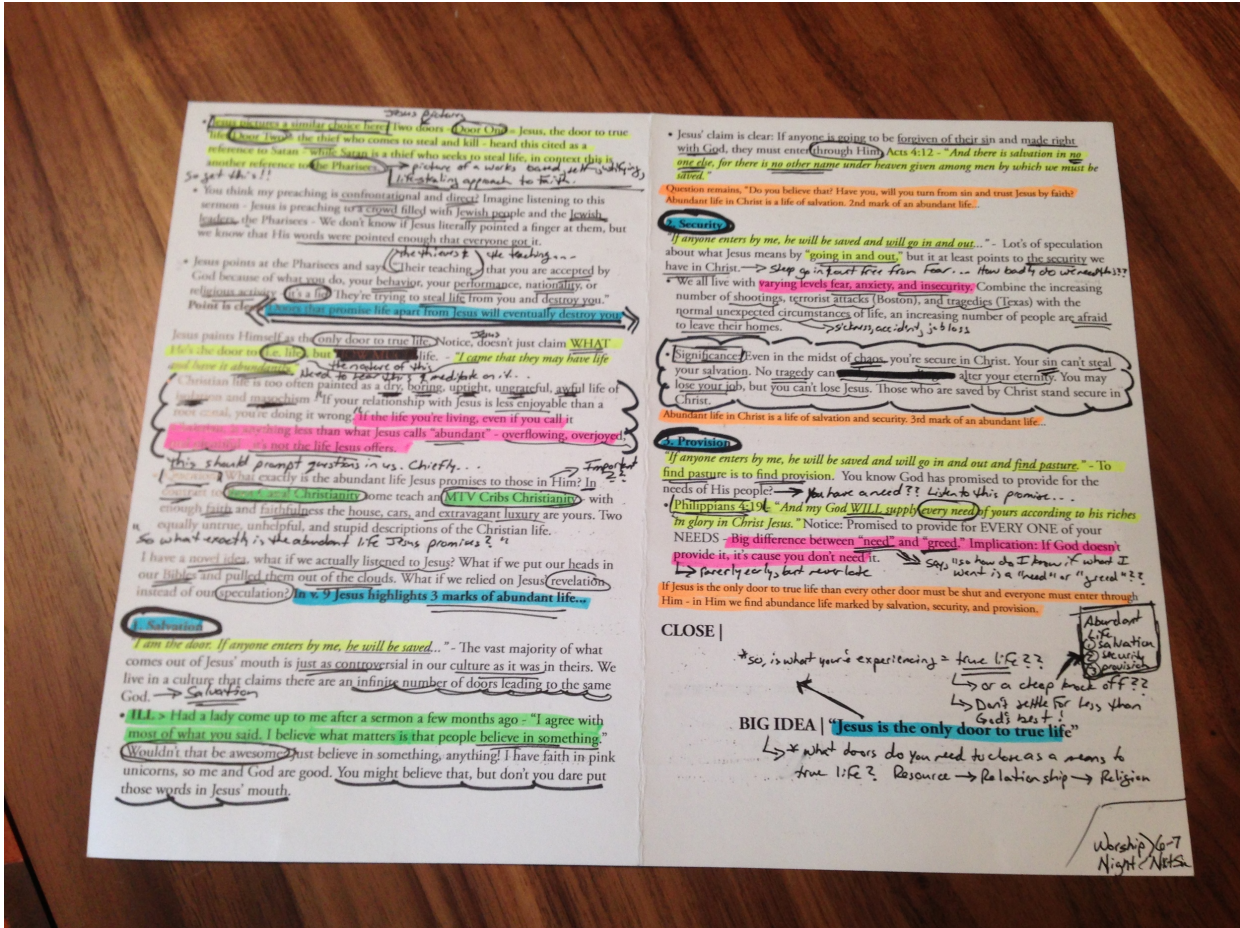 Jesus pictures
• Jesus pictures a similar choice here: Two doors - Door One = Jesus, the door to true
life. Door Two = the thief who comes to steal and kill - heard this cited as a
reference to Satan - while Satan is a thief who seeks to steal life, in context this is
another reference to the Pharisees. → picture of a works based, self-justifying,
so get this!! life-stealing approach to faith.
• You think my preaching is confrontational and direct? Imagine listening to this
sermon - Jesus is preaching to a crowd filled with Jewish people and the Jewish
leaders, the Pharisees - We don't know if Jesus literally pointed a finger at them, but
we know that His words were pointed enough that everyone got it.
the teaching...
• Jesus points at the Pharisees and says, "Their teaching, that you are accepted by
God because of what you do, your behavior, your performance, nationality, or
religious activity - it's a lie! They're trying to steal life from you and destroy you."
Point is clear: Doors that promise life apart from Jesus will eventually destroy you.
Jesus
Jesus paints Himself as the only door to true life. Notice, doesn't just claim WHAT
He's the door to (i.e. life), but life. - "I came that they may have life
the nature of this
and have it abundantly."
need to hear this & meditate on it...
Christian life is too often painted as a dry, boring, uptight, ungrateful, awful life of
isolation and masochism. "If your relationship with Jesus is less enjoyable than a
root canal, you're doing it wrong." If the life you're living, even if you call it
is anything less than what Jesus calls "abundant" - overflowing, overjoyed,
it's not the life Jesus offers.
this should prompt questions in us. Chiefly... → Important
What exactly is the abundant life Jesus promises to those in Him? In
contrast to Root Canal Christianity some teach an MTV Cribs Christianity - with
enough faith and faithfulness the house, cars, and extravagant luxury are yours. Two
equally untrue, unhelpful, and stupid descriptions of the Christian life.
"so what exactly is the abundant life Jesus promises?"
I have a novel idea, what if we actually listened to Jesus? What if we put our heads in
our Bibles and pulled them out of the clouds. What if we relied on Jesus' revelation
instead of our speculation? In v. 9 Jesus highlights 3 marks of abundant life...
1. Salvation
"I am the door. If anyone enters by me, he will be saved..." - The vast majority of what
comes out of Jesus' mouth is just as controversial in our culture as it was in theirs. We
live in a culture that claims there are an infinite number of doors leading to the same
God. → Salvation
• ILL > Had a lady come up to me after a sermon a few months ago - "I agree with
most of what you said. I believe what matters is that people believe in something."
Wouldn't that be awesome? Just believe in something, anything! I have faith in pink
unicorns, so me and God are good. You might believe that, but don't you dare put
those words in Jesus' mouth.
• Jesus' claim is clear: If anyone is going to be forgiven of their sin and made right
with God, they must enter through Him. Acts 4:12 - "And there is salvation in no
one else, for there is no other name under heaven given among men by which we must be
saved."
Question remains, "Do you believe that? Have you, will you turn from sin and trust Jesus by faith?
Abundant life in Christ is a life of salvation. 2nd mark of an abundant life...
2. Security
"If anyone enters by me, he will be saved and will go in and out..." - Lot's of speculation
about what Jesus means by "going in and out," but it at least points to the security we
have in Christ. → sheep go in & out free from fear... How badly do we need this??
• We all live with varying levels fear, anxiety, and insecurity. Combine the increasing
number of shootings, terrorist attacks (Boston), and tragedies (Texas) with the
normal unexpected circumstances of life, an increasing number of people are afraid
to leave their homes. → sickness, accident, job loss
• Significance? Even in the midst of chaos, you're secure in Christ. Your sin can't steal
your salvation. No tragedy can alter your eternity. You may
lose your job, but you can't lose Jesus. Those who are saved by Christ stand secure in
Christ.
Abundant life in Christ is a life of salvation and security. 3rd mark of an abundant life...
3. Provision
"If anyone enters by me, he will be saved and will go in and out and find pasture." - To
find pasture is to find provision. You know God has promised to provide for the
needs of His people? → You have a need?? Listen to this promise...
• Philippians 4:19 - "And my God WILL supply every need of yours according to his riches
in glory in Christ Jesus." Notice: Promised to provide for EVERY ONE of your
NEEDS - Big difference between "need" and "greed." Implication: If God doesn't
provide it, it's cause you don't need it.
↳ rarely early, but never late
says "so how do I know if what I
want is a "need" or "greed"??
If Jesus is the only door to true life than every other door must be shut and everyone must enter through
Him - in Him we find abundance life marked by salvation, security, and provision.
CLOSE |
Abundant
Life
① salvation
② security
③ provision
*so, is what you're experiencing = true life??
↳ or a cheap knock off??
↳ Don't settle for less than
God's best!
BIG IDEA | "Jesus is the only door to true life"
↳ * what doors do you need to close as a means to
true life? Resource → Relationship → Religion
Worship 6-7
Night